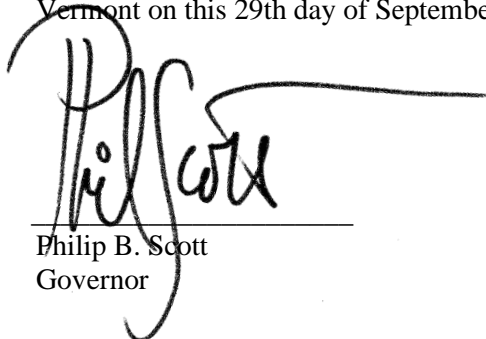 Vermont on this 29th day of Septembe
Phil Scott
Philip B. Scott
Governor